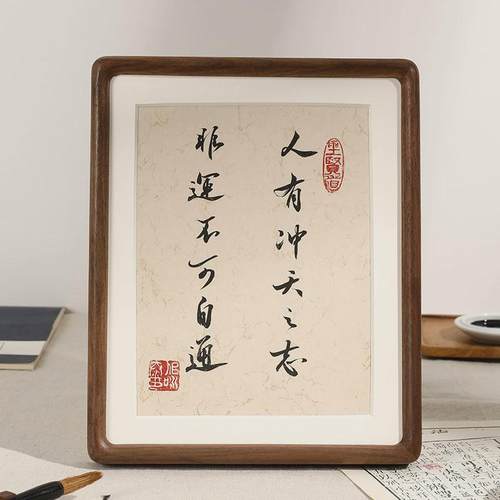 人有冲天之志
非運不可自通